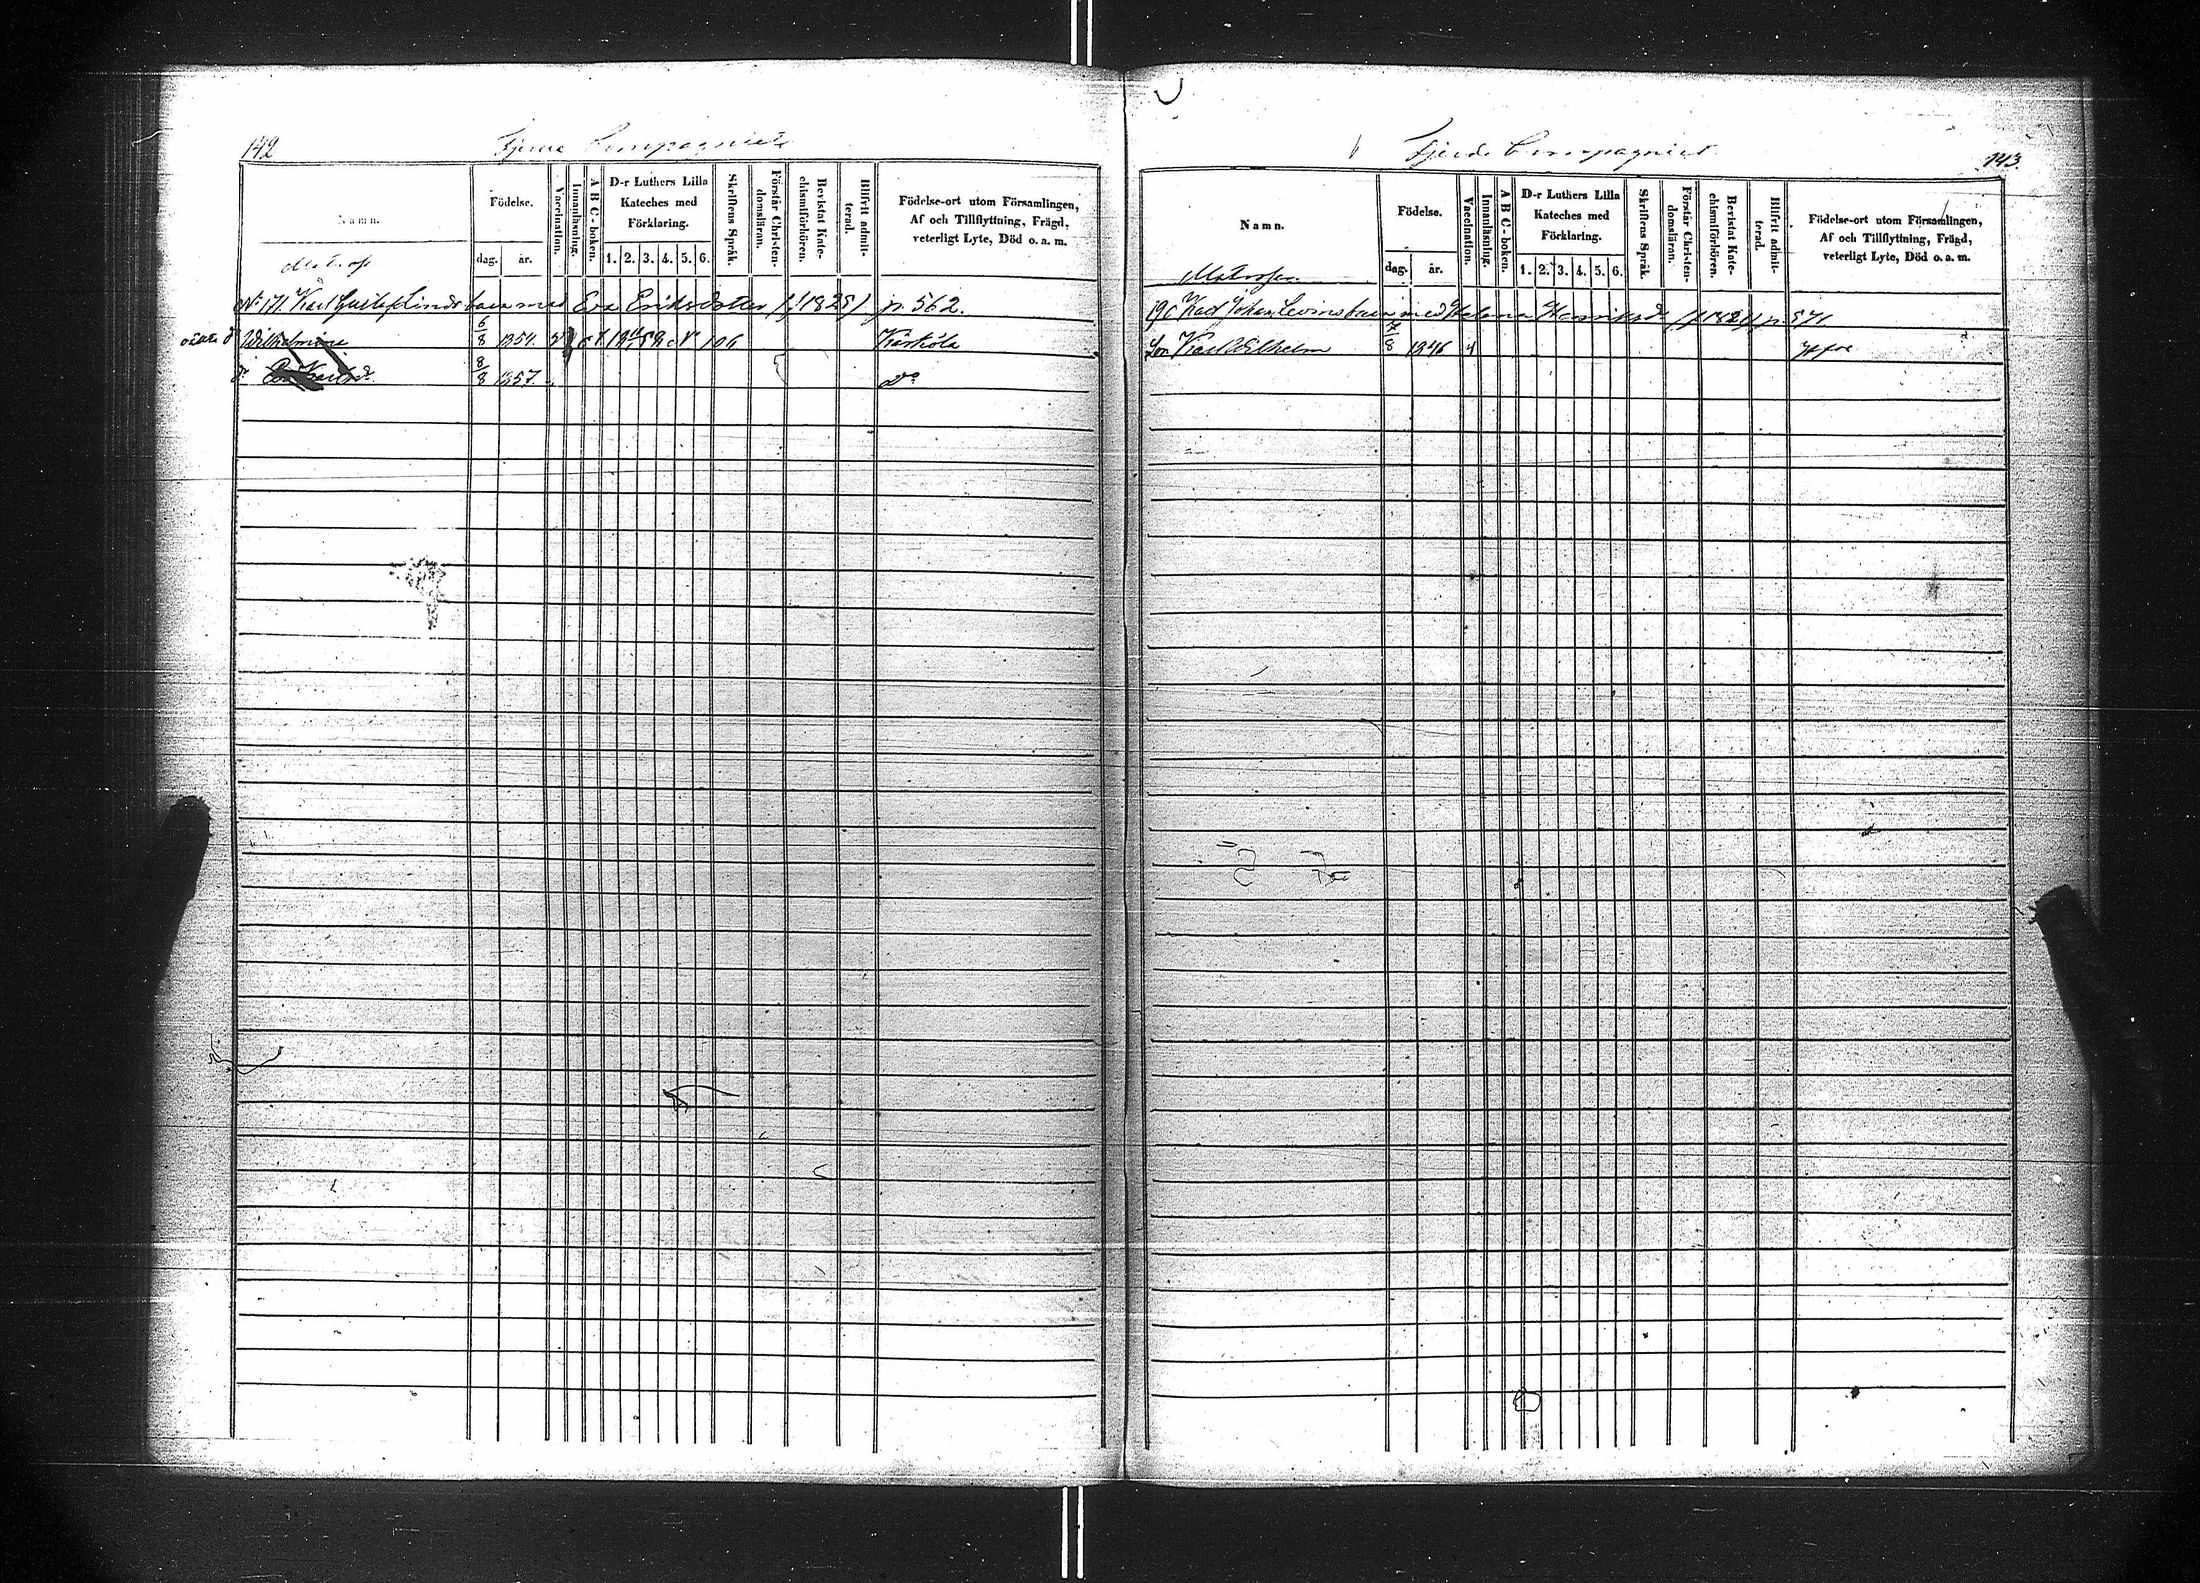 142
Fjerde Compagniet
Namn.
Födelse.
dag.
år.
Vaccination.
Innanläsning.
A B C-boken.
D-r Luthers Lilla
Kateches med
Förklaring.
1. 2. 3. 4. 5. 6.
Skriftens Språk.
Förstår Christen-
domsläran.
Bevistat Kate-
chismiförhören.
Blifvit admit-
terad.
Födelse-ort utom Församlingen,
Af och Tillflyttning, Frägd,
veterligt Lyte, Död o. a. m.
N: 171. Karl Gustaf Linds barn med Eva Eriksdotter (f 1825) p. 562.
Wilhelmina 6/8 1854. Kärkölä
8/8 1857. do
Fjerde Compagniet
143
Namn.
Matrosen
Födelse.
dag.
år.
Vaccination.
Innanläsning.
A B C-boken.
D-r Luthers Lilla
Kateches med
Förklaring.
1. 2. 3. 4. 5. 6.
Skriftens Språk.
Förstår Christen-
domsläran.
Bevistat Kate-
chismiförhören.
Blifvit admit-
terad.
Födelse-ort utom Församlingen,
Af och Tillflyttning, Frägd,
veterligt Lyte, Död o. a. m.
Karl Johan Levins barn med Helena Henriksd p. 571.
Son Karl Wilhelm 1846